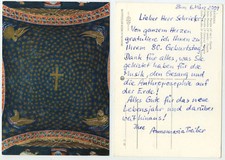 Lieber Herr Schriefer!
Von ganzem Herzen
gratuliere ich Ihnen zu
Ihrem 80. Geburtstag!
Dank für alles, was Sie
geleistet haben für die
Musik, den Gesang und
die Anthroposophie auf
der Erde!
Alles Gute für das neue
Lebensjahr und darüber
weit hinaus!
Ihre
Annemarie